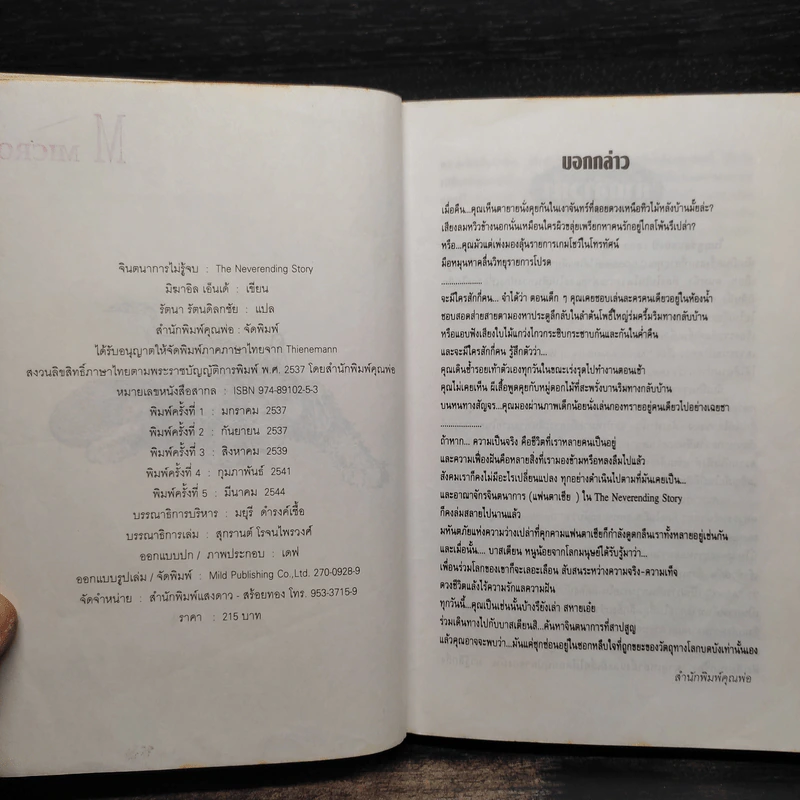 M MICRO
จินตนาการไม่รู้จบ : The Neverending Story
มิฆาอิล เอ็นเด้ : เขียน
รัตนา รัตนดิลกชัย : แปล
สำนักพิมพ์คุณพ่อ : จัดพิมพ์
ได้รับอนุญาตให้จัดพิมพ์ภาคภาษาไทยจาก Thienemann
สงวนลิขสิทธิ์ภาษาไทยตามพระราชบัญญัติการพิมพ์ พ.ศ. 2537 โดยสำนักพิมพ์คุณพ่อ
หมายเลขหนังสือสากล : ISBN 974-89102-5-3
พิมพ์ครั้งที่ 1 : มกราคม 2537
พิมพ์ครั้งที่ 2 : กันยายน 2537
พิมพ์ครั้งที่ 3 : สิงหาคม 2539
พิมพ์ครั้งที่ 4 : กุมภาพันธ์ 2541
พิมพ์ครั้งที่ 5 : มีนาคม 2544
บรรณาธิการบริหาร : มยุรี ดำรงค์เชื้อ
บรรณาธิการเล่ม : สุกรานต์ โรจนไพรวงศ์
ออกแบบปก / ภาพประกอบ : เดฟ
ออกแบบรูปเล่ม / จัดพิมพ์ : Mild Publishing Co.,Ltd. 270-0928-9
จัดจำหน่าย : สำนักพิมพ์แสงดาว - สร้อยทอง โทร. 953-3715-9
ราคา : 215 บาท
บอกกล่าว
เมื่อคืน...คุณเห็นตายายนั่งคุยกันในเงาจันทร์ที่ลอยดวงเหนือทิวไม้หลังบ้านมั้ยล่ะ?
เสียงลมหวีวข้างนอกนั่นเหมือนใครผิวขลุ่ยเพรียกหาคนรักอยู่ไกลโพ้นรึเปล่า?
หรือ...คุณมัวแต่เพ่งมองลุ้นรายการเกมโชว์ในโทรทัศน์
มือหมุนหาคลื่นวิทยุรายการโปรด
....................
จะมีใครสักกี่คน... จำได้ว่า ตอนเด็ก ๆ คุณเคยชอบเล่นละครคนเดียวอยู่ในห้องน้ำ
ชอบสอดส่ายสายตามองหาประตูลึกลับในลำต้นโพธิ์ใหญ่ร่มครึ้มริมทางกลับบ้าน
หรือแอบฟังเสียงใบไม้แกว่งไกวกระซิบกระซาบกันและกันในค่ำคืน
และจะมีใครสักกี่คน รู้สึกตัวว่า...
คุณเดินซ้ำรอยเท้าตัวเองทุกวันในขณะเร่งรุดไปทำงานตอนเช้า
คุณไม่เคยเห็น ผีเสื้อพูดคุยกับหมู่ดอกไม้ที่สะพรั่งบานริมทางกลับบ้าน
บนหนทางสัญจร...คุณมองผ่านภาพเด็กน้อยนั่งเล่นกองทรายอยู่คนเดียวไปอย่างเฉยชา
....................
ถ้าหาก... ความเป็นจริง คือชีวิตที่เราหลายคนเป็นอยู่
และความเพื่องฝันคือหลายสิ่งที่เรามองข้ามหรือหลงลืมไปแล้ว
สังคมเราก็คงไม่มีอะไรเปลี่ยนแปลง ทุกอย่างดำเนินไปตามที่มันเคยเป็น...
และอาณาจักรจินตนาการ (แฟนตาเซีย ) ใน The Neverending Story
ก็คงล่มสลายไปนานแล้ว
มหันตภัยแห่งความว่างเปล่าที่คุกคามแฟนตาเซียก็กำลังดูดกลืนเราทั้งหลายอยู่เช่นกัน
และเมื่อนั้น.... บาสเตียน หนูน้อยจากโลกมนุษย์ได้รับรู้มาว่า...
เพื่อนร่วมโลกของเขาก็จะเลอะเลือน สับสนระหว่างความจริง-ความเท็จ
ดวงชีวิตแล้งไร้ความรักแลความฝัน
ทุกวันนี้...คุณเป็นเช่นนั้นบ้างรึยังเล่า สหายเอ๋ย
ร่วมเดินทางไปกับบาสเตียนสิ...ค้นหาจินตนาการที่สาปสูญ
แล้วคุณอาจจะพบว่า...มันแค่ซุกซ่อนอยู่ในซอกหลืบใจที่ถูกขยะของวัตถุทางโลกบดบังเท่านั้นเอง
สำนักพิมพ์คุณพ่อ